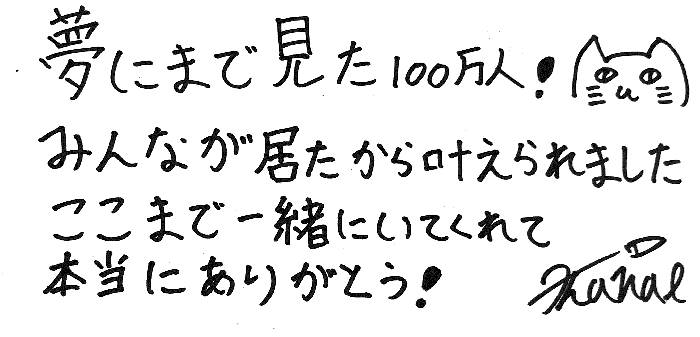 夢にまで見た100万人!
みんなが居たから叶えられました
ここまで一緒にいてくれて
本当にありがとう!
Kanae